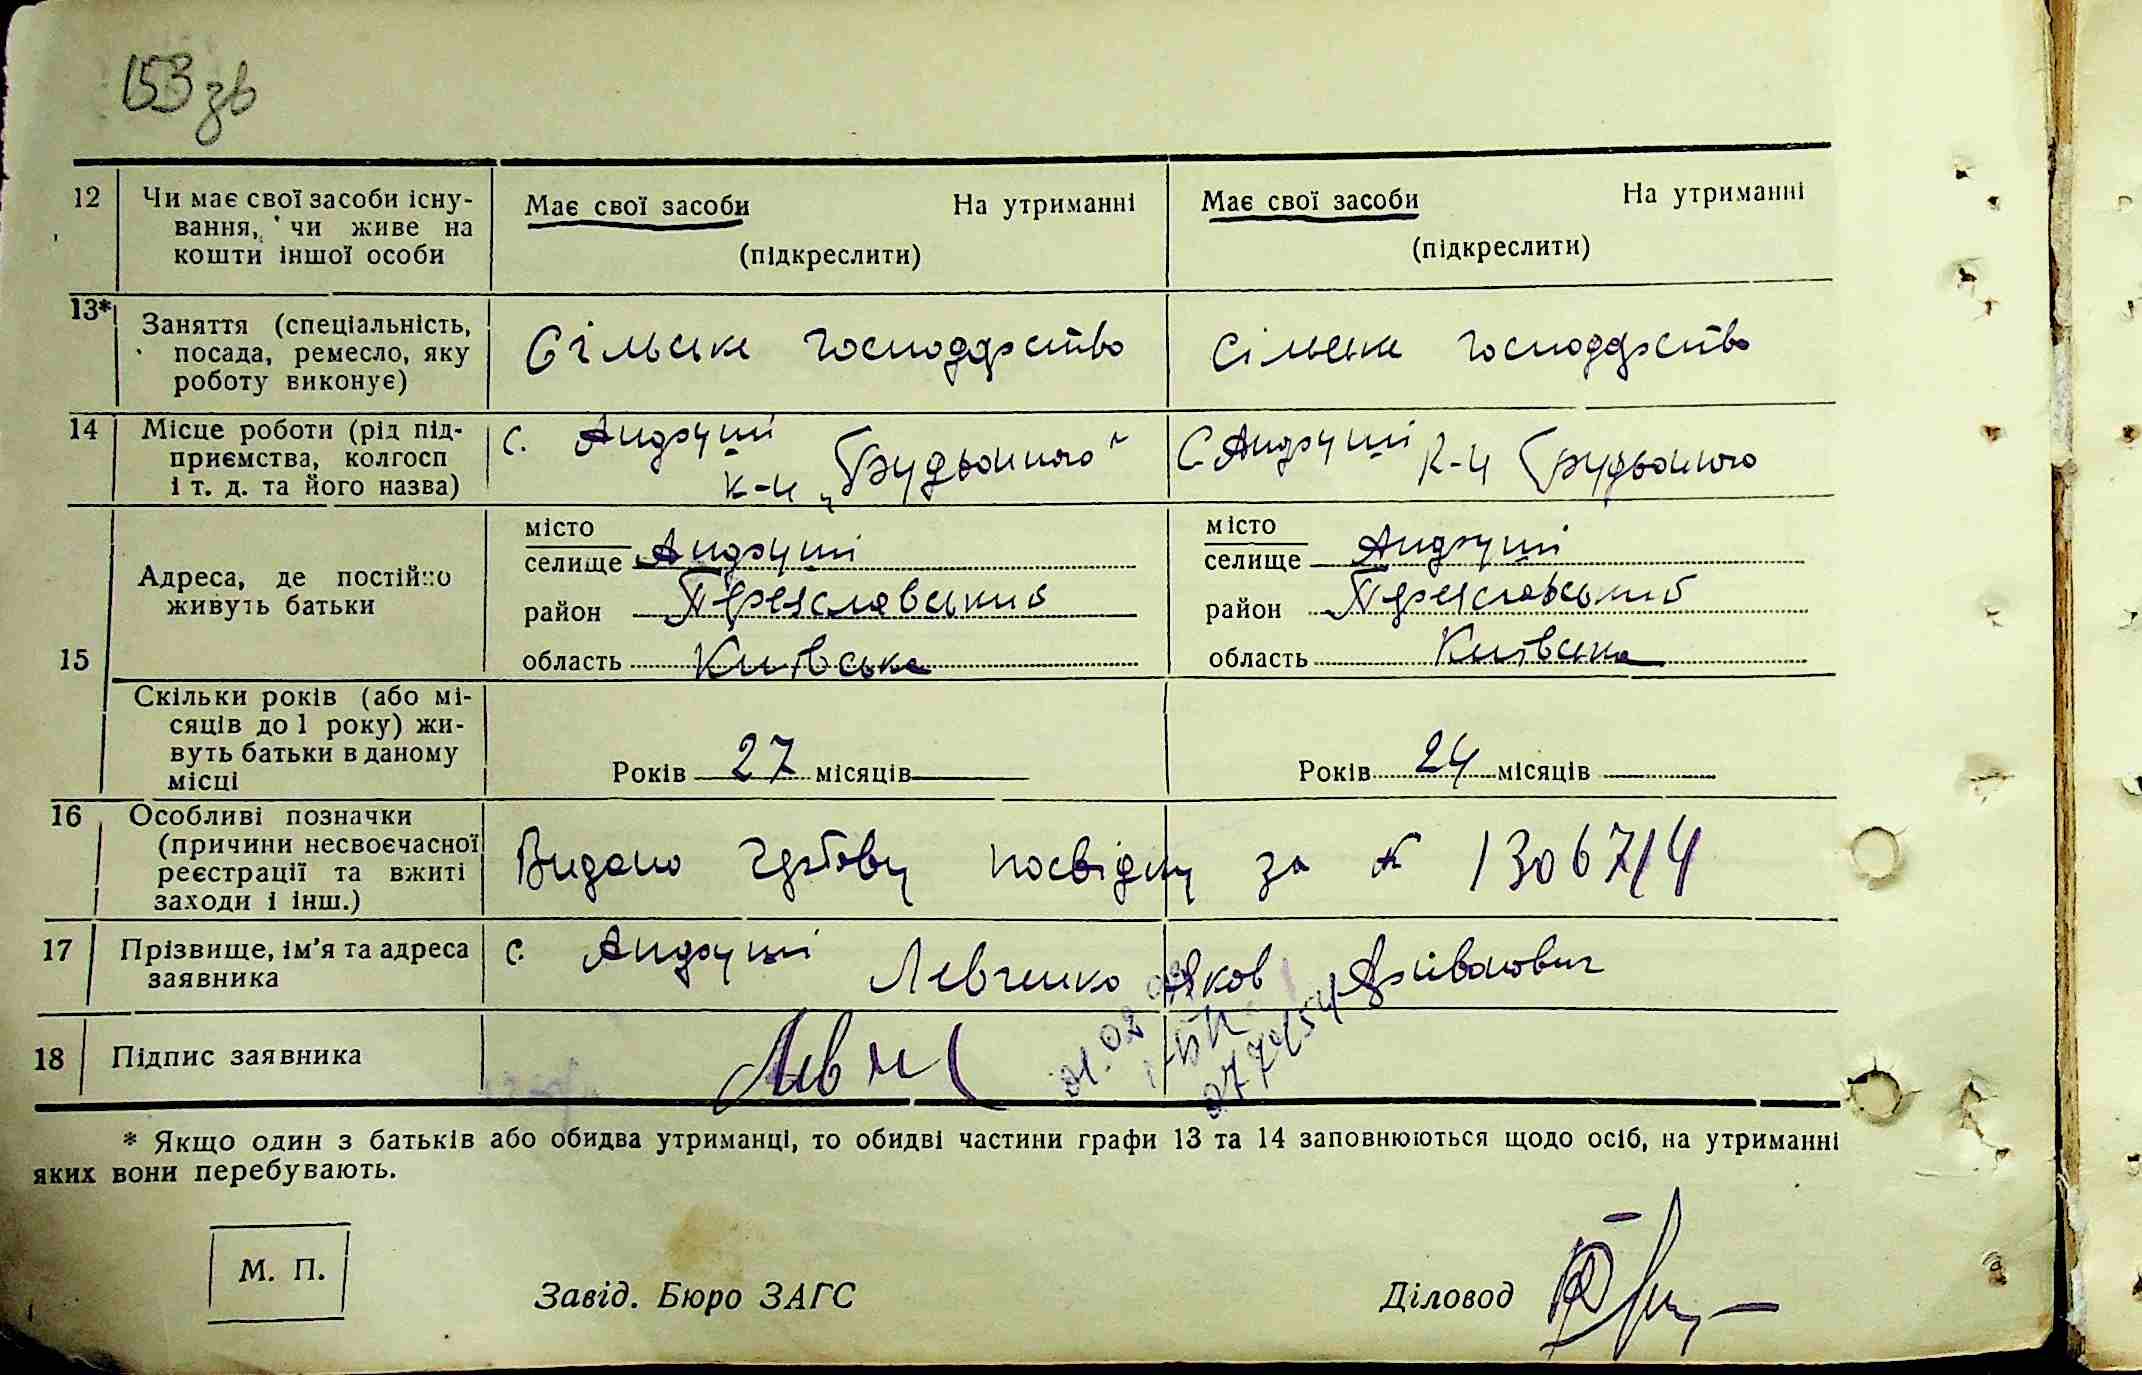 153 зв
12 Чи має свої засоби існу-
вання, чи живе на
кошти іншої особи
Має свої засоби На утриманні
(підкреслити)
Має свої засоби На утриманні
(підкреслити)
13* Заняття (спеціальність,
посада, ремесло, яку
роботу виконує)
Сільське господарство
Сільське господарство
14 Місце роботи (рід під-
приємства, колгосп
і т. д. та його назва)
с. Андруші
к-п „Будьонного"
С. Андруші к-п Будьонного
15 Адреса, де постійно
живуть батьки
місто
селище Андруші
район Переяславський
область Київська
місто
селище Андруші
район Переяславський
область Київська
Скільки років (або мі-
сяців до 1 року) жи-
вуть батьки в даному
місці
Років 27 місяців
Років 24 місяців
16 Особливі позначки
(причини несвоєчасної
реєстрації та вжиті
заходи і інш.)
Видано посвідку за №
17 Прізвище, ім'я та адреса
заявника
с. Андруші Левченко Яков
18 Підпис заявника
* Якщо один з батьків або обидва утриманці, то обидві частини графи 13 та 14 заповнюються щодо осіб, на утриманні
яких вони перебувають.
М. П.
Завід. Бюро ЗАГС Діловод